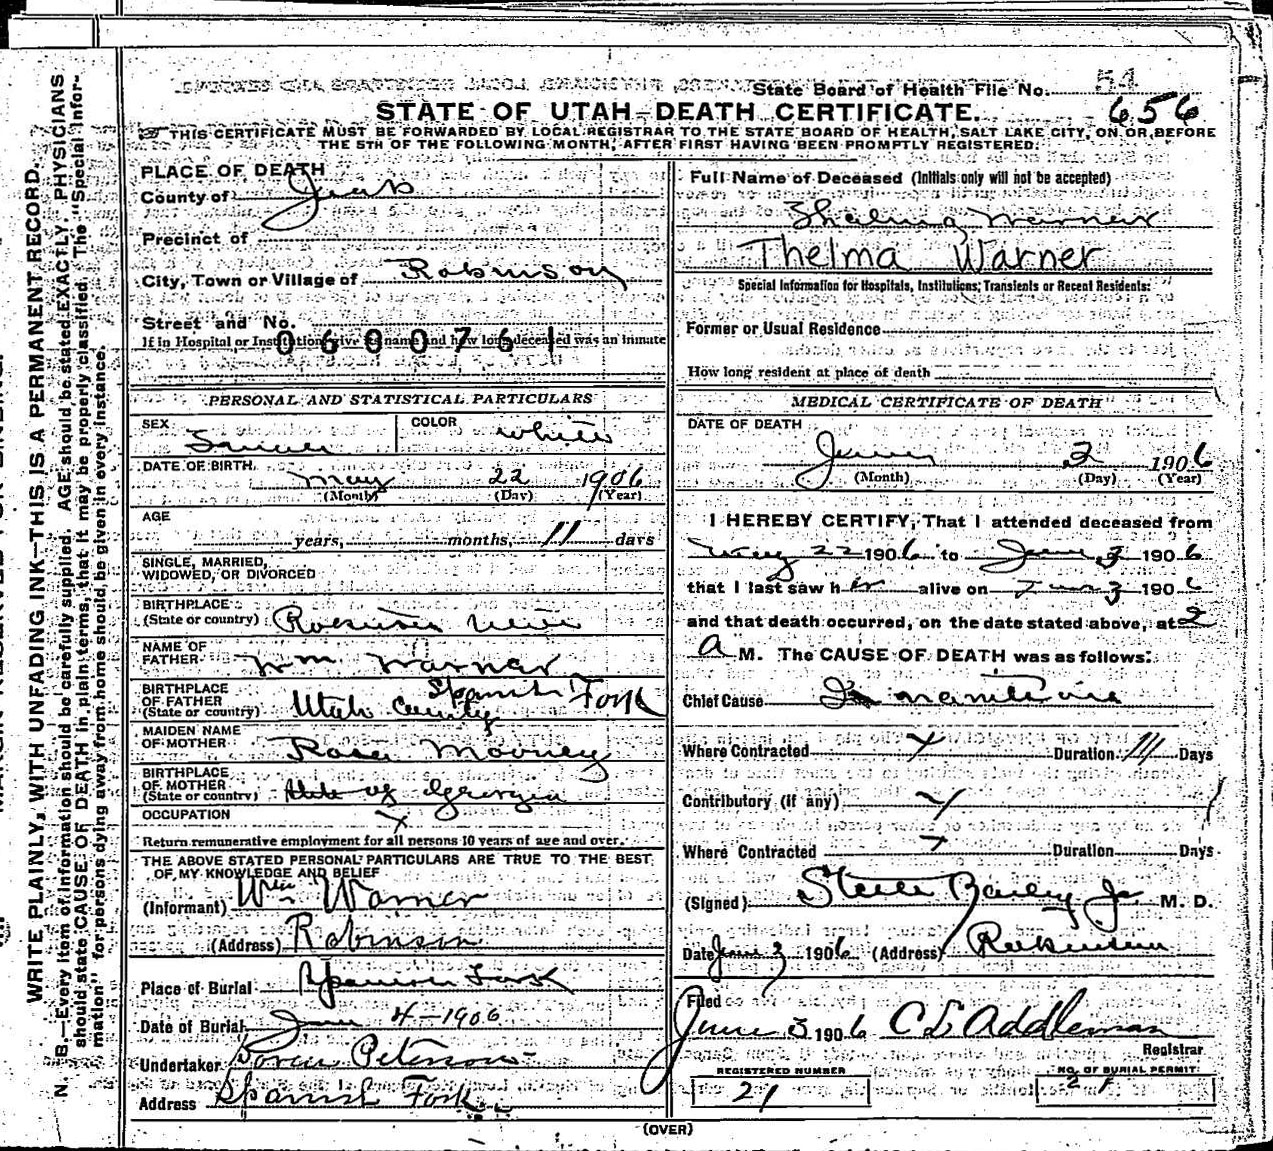 State Board of Health File No. 54
656
STATE OF UTAH—DEATH CERTIFICATE.
THIS CERTIFICATE MUST BE FORWARDED BY LOCAL REGISTRAR TO THE STATE BOARD OF HEALTH, SALT LAKE CITY, ON OR BEFORE
THE 5TH OF THE FOLLOWING MONTH, AFTER FIRST HAVING BEEN PROMPTLY REGISTERED.
WRITE PLAINLY, WITH UNFADING INK—THIS IS A PERMANENT RECORD.
N. B.—Every item of information should be carefully supplied. AGE should be stated EXACTLY. PHYSICIANS
should state CAUSE OF DEATH in plain terms, that it may be properly classified. The "Special Infor-
mation" for persons dying away from home should be given in every instance.
PLACE OF DEATH
County of Juab
Precinct of
City, Town or Village of Robinson
Street and No.
If in Hospital or Institution give its name and how long deceased was an inmate
0600761
PERSONAL AND STATISTICAL PARTICULARS
SEX COLOR white
DATE OF BIRTH May 22 1906
(Month) (Day) (Year)
AGE
years, months, 11 days
SINGLE, MARRIED,
WIDOWED, OR DIVORCED
BIRTHPLACE
(State or country) Robinson
NAME OF
FATHER Wm. Warner
BIRTHPLACE
OF FATHER
(State or country) Utah County Spanish Fork
MAIDEN NAME
OF MOTHER Rosa Mooney
BIRTHPLACE
OF MOTHER
(State or country) State of Georgia
OCCUPATION
Return remunerative employment for all persons 10 years of age and over.
THE ABOVE STATED PERSONAL PARTICULARS ARE TRUE TO THE BEST
OF MY KNOWLEDGE AND BELIEF
(Informant) Wm Warner
(Address) Robinson
Place of Burial Spanish Fork
Date of Burial June 4-1906
Undertaker Peterson
Address Spanish Fork
Full Name of Deceased (Initials only will not be accepted)
Thelma Warner
Thelma Warner
Special Information for Hospitals, Institutions, Transients or Recent Residents:
Former or Usual Residence
How long resident at place of death
MEDICAL CERTIFICATE OF DEATH
DATE OF DEATH
June 2 1906
(Month) (Day) (Year)
I HEREBY CERTIFY, That I attended deceased from
May 22 1906 to June 3 1906
that I last saw h alive on June 3 1906
and that death occurred, on the date stated above, at 2
A M. The CAUSE OF DEATH was as follows:
Chief Cause Inanition
Where Contracted Duration 11 Days
Contributory (if any)
Where Contracted Duration Days
(Signed) Steele Bailey Jr M. D.
Date June 3 1906 (Address) Robinson
Filed
June 3 1906 C E Addleman
Registrar
REGISTERED NUMBER
21
NO. OF BURIAL PERMIT
21
(OVER)